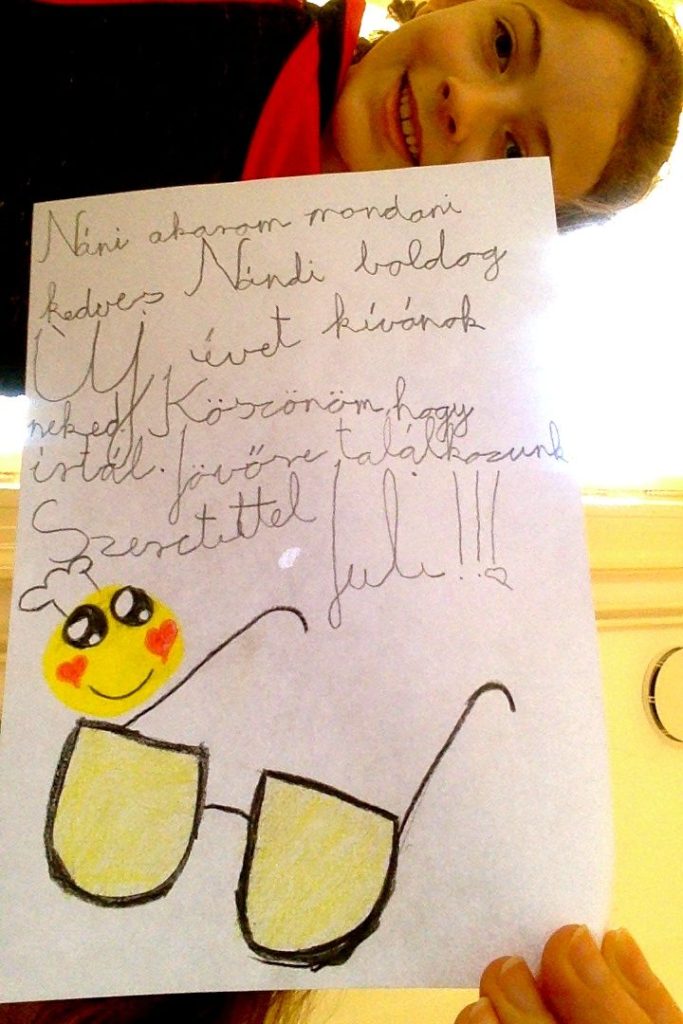 Náni akarom mondani
kedves Nándi boldog
Új, évet kívánok
neked! Köszönöm, hogy
írtál. Jövőre találkozunk
Szeretettel Juli!!!